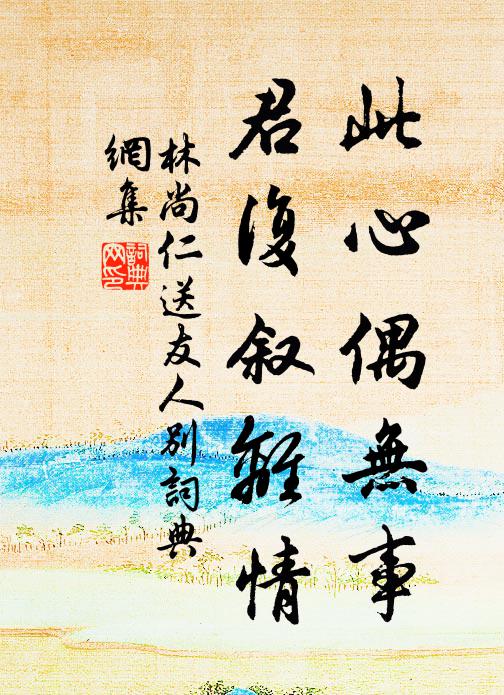 此心偶無事
君復叙離情
林尚仁送友人別詞典
網集
詞典
网印